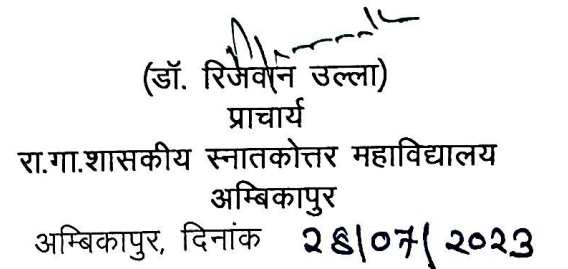 (डॉ. रिजवान उल्ला)
प्राचार्य
रा.गा.शासकीय स्नातकोत्तर महाविद्यालय
अम्बिकापुर
अम्बिकापुर, दिनांक 28/07/2023